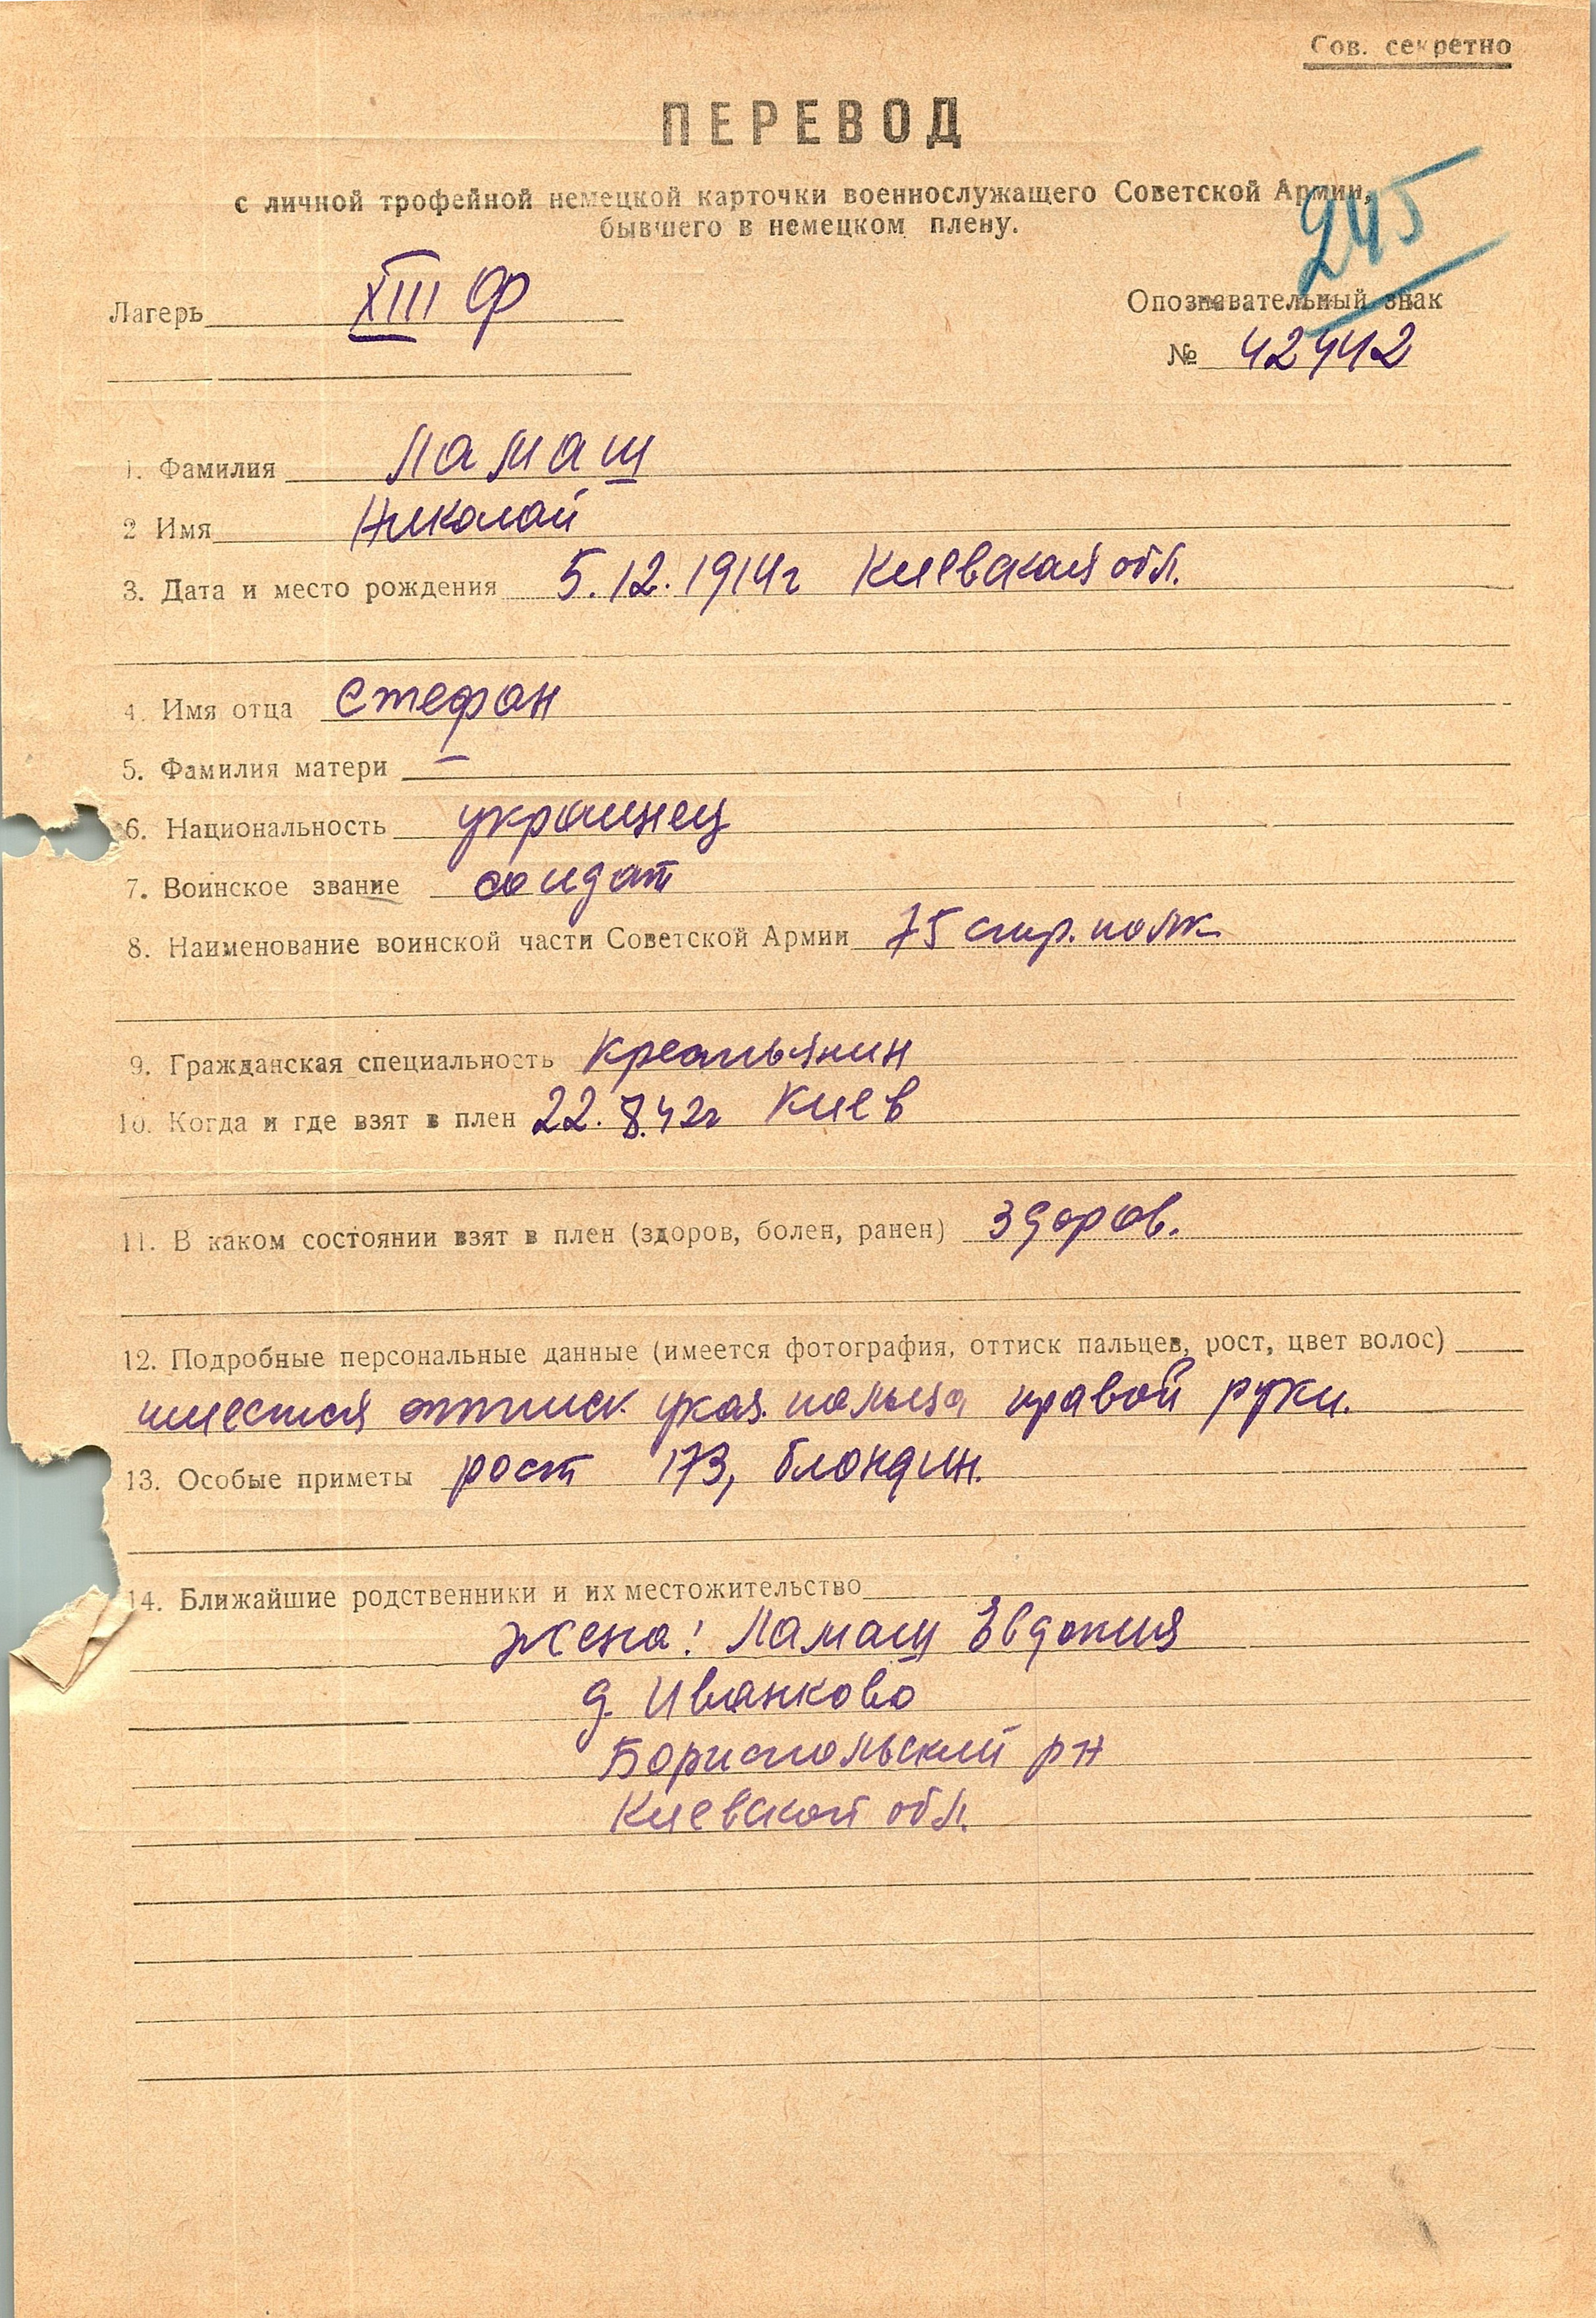 Сов. секретно
ПЕРЕВОД
с личной трофейной немецкой карточки военнослужащего Советской Армии,
бывшего в немецком плену.
245
Лагерь XIII Ф
Опознавательный знак
№ 42442
1. Фамилия Ламаш
2 Имя Николай
3. Дата и место рождения 5.12.1914г Киевская обл.
4. Имя отца Стефан
5. Фамилия матери —
6. Национальность украинец
7. Воинское звание солдат
8. Наименование воинской части Советской Армии 75 стр. полк
9. Гражданская специальность крестьянин
10. Когда и где взят в плен 22.8.42г Киев
11. В каком состоянии взят в плен (здоров, болен, ранен) здоров.
12. Подробные персональные данные (имеется фотография, оттиск пальцев, рост, цвет волос)
имеется оттиск указ. пальца правой руки.
13. Особые приметы рост 173, блондин.
14. Ближайшие родственники и их местожительство
жена: Ламаш Евдокия
д. Иванково
Бориспольский рн
Киевской обл.